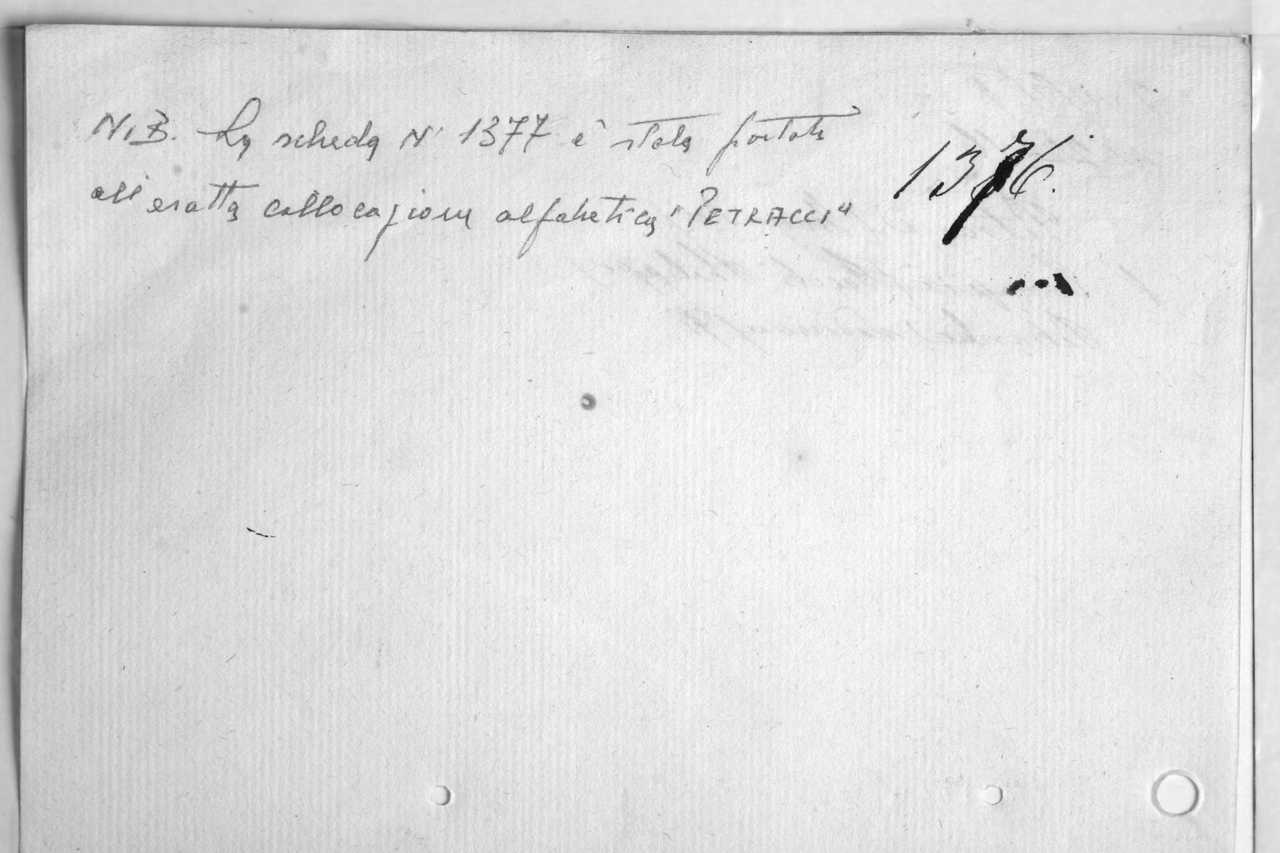 N.B. La scheda N° 1377 è stata portata
all'esatta collocazione alfabetica "PETRACCI"
1376.